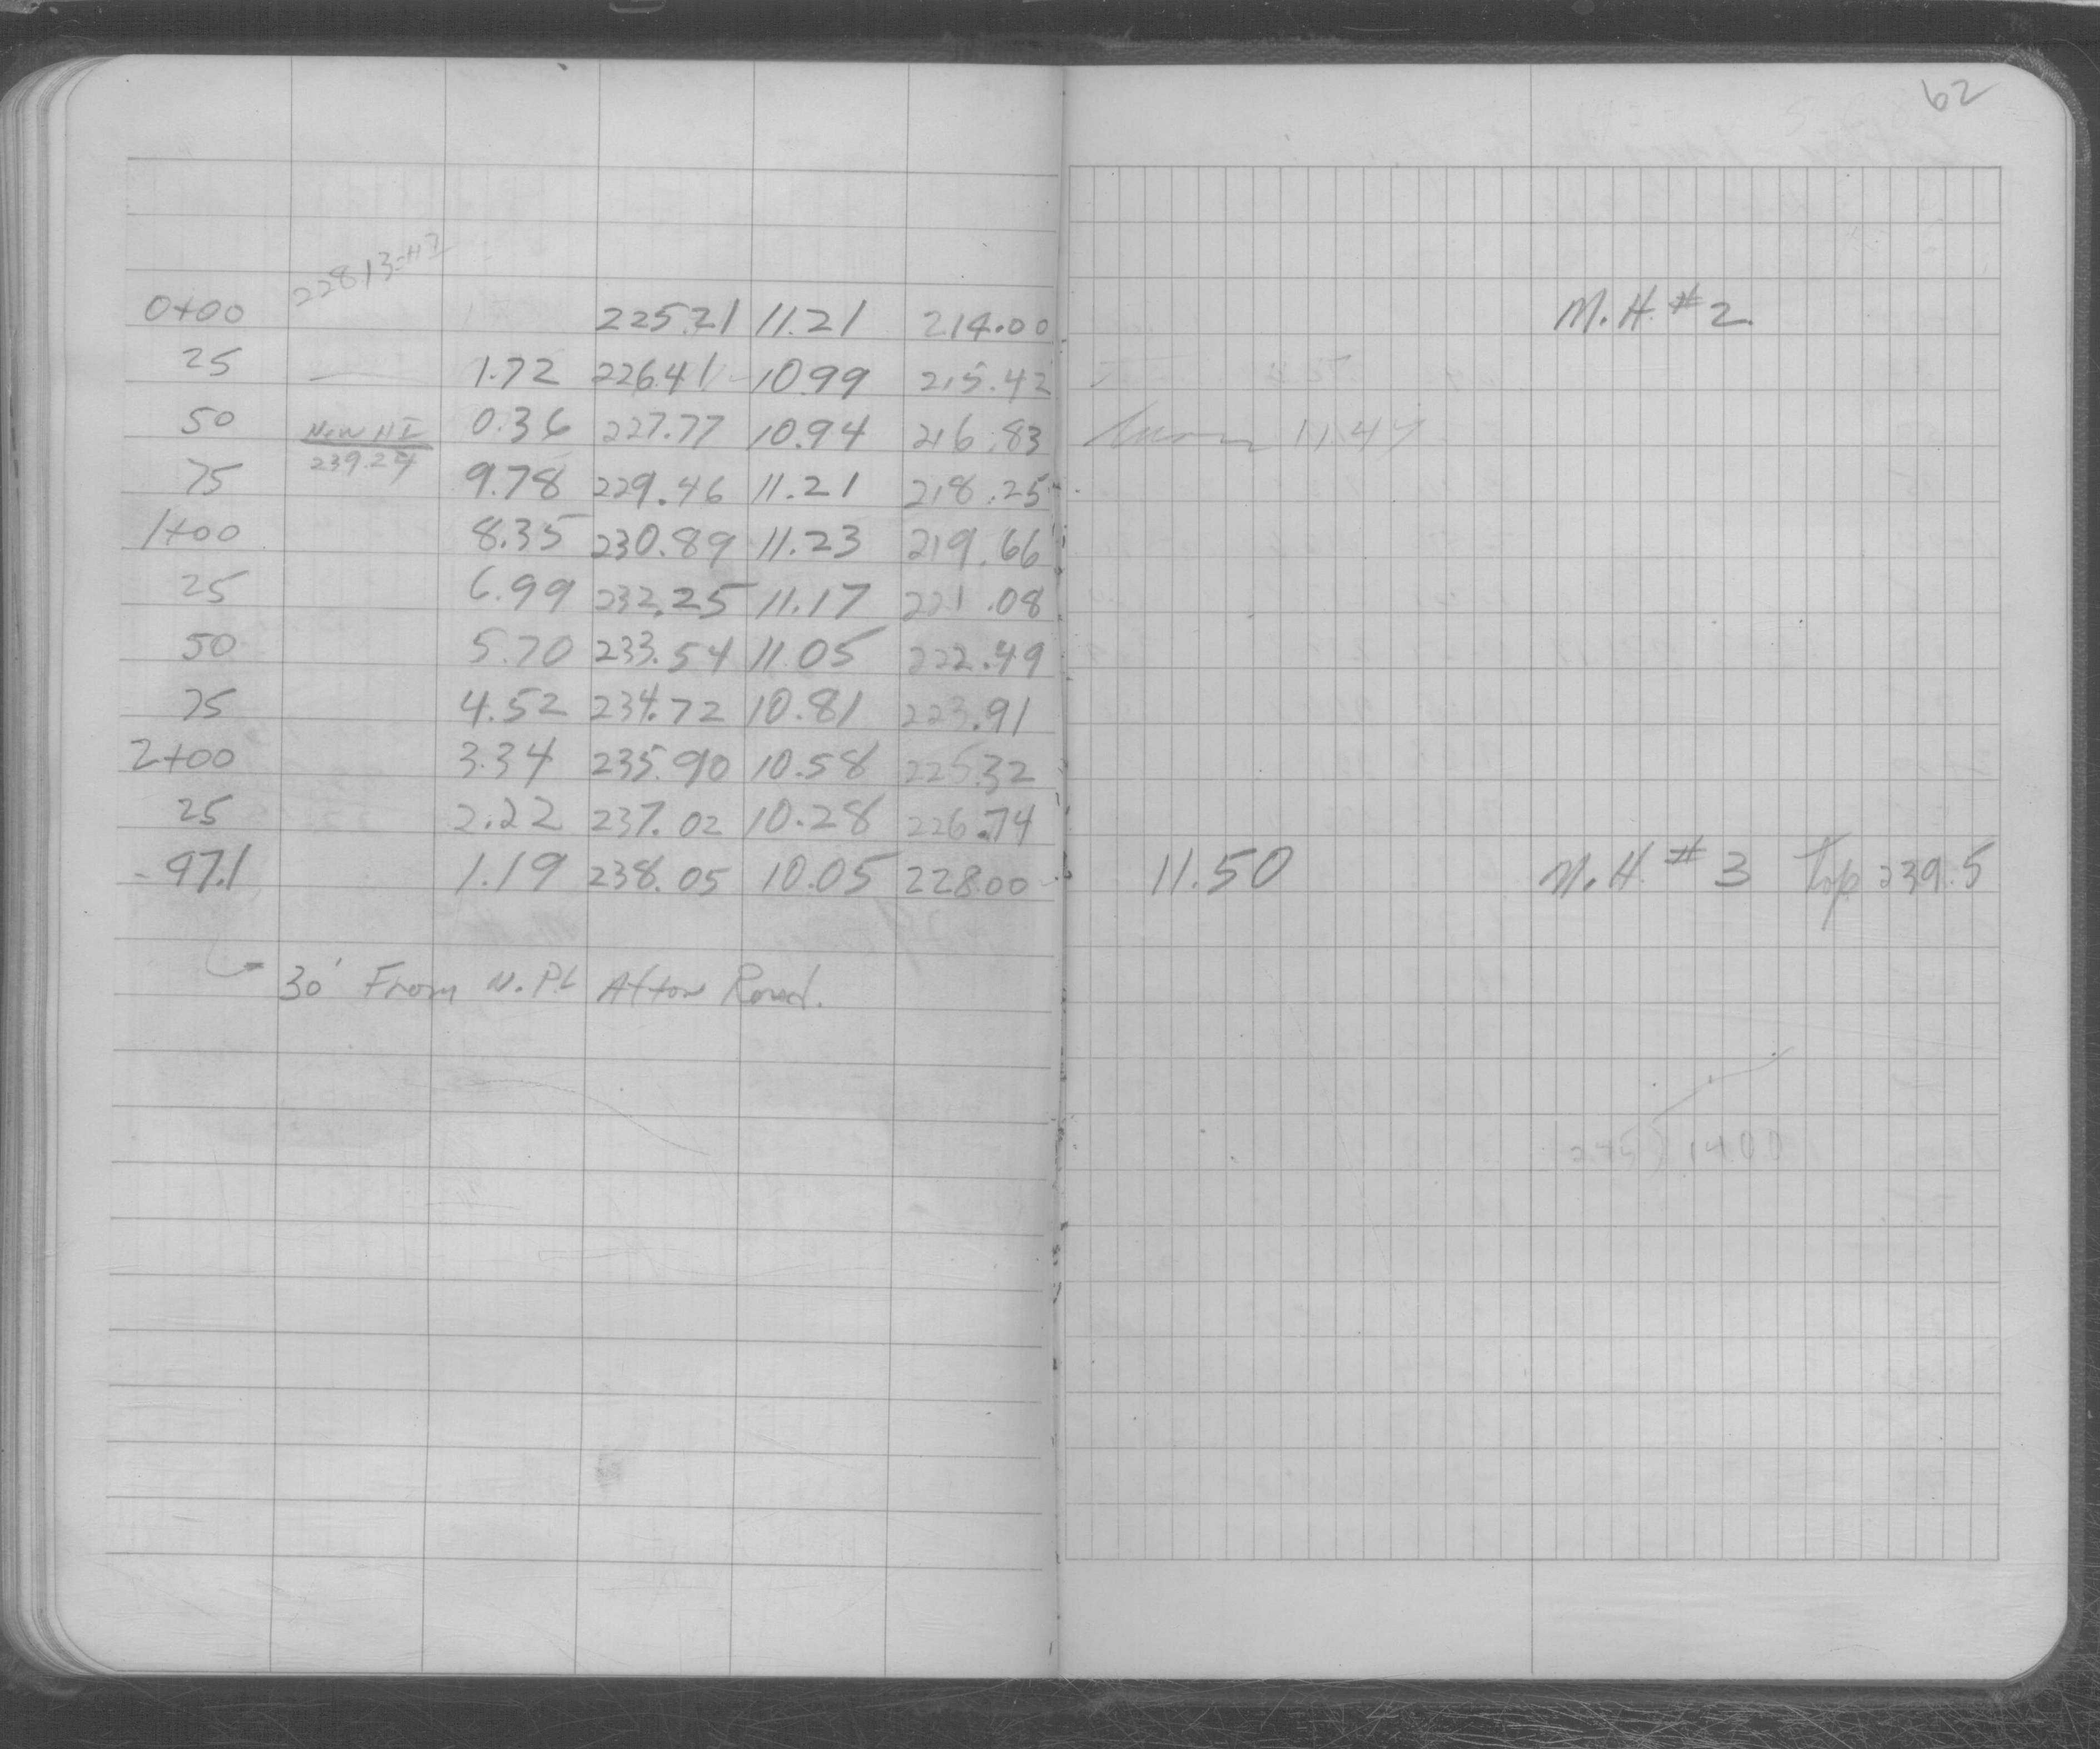 62
228.13=HI
0+00 225.21 11.21 214.00 M.H. #2
25 — 1.72 226.41 10.99 215.42
50 New HI 0.36 227.77 10.94 216.83 11.47
239.24
75 9.78 229.46 11.21 218.25
1+00 8.35 230.89 11.23 219.66
25 6.99 232.25 11.17 221.08
50 5.70 233.54 11.05 222.49
75 4.52 234.72 10.81 223.91
2+00 3.34 235.90 10.58 225.32
25 2.22 237.02 10.28 226.74
97.1 1.19 238.05 10.05 228.00 11.50 M.H. #3 Top 239.5
30' From N. PL Afton Road.
1400